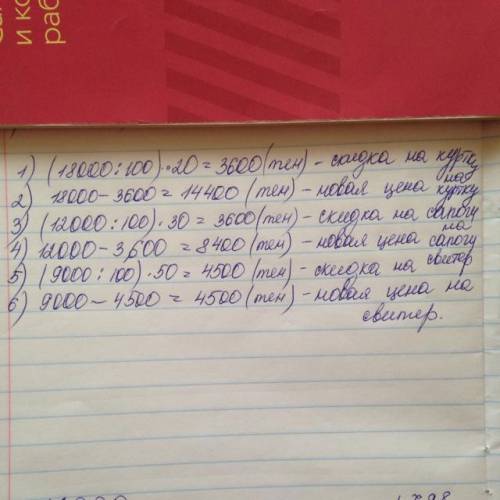 и ко
раб
1) (18000:100)·20=3600(тен)-скидка на куртку
2) 18000-3600=14400(тен)-новая цена на куртку
3) (12000:100)·30=3600(тен)-скидка на сапогу
4) 12000-3,600=8400(тен)-новая цена на сапогу
5) (9000:100)·50=4500(тен)-скидка на свитер
6) 9000-4500=4500(тен)-новая цена на
свитер.